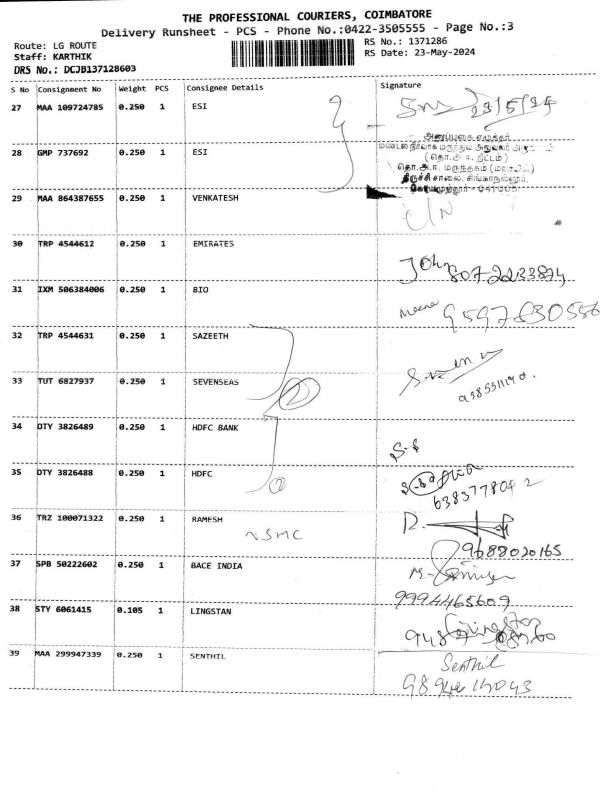 THE PROFESSIONAL COURIERS, COIMBATORE
Delivery Runsheet - PCS - Phone No.:0422-3505555 - Page No.:3
Route: LG ROUTE
Staff: KARTHIK
DRS No.: DCJB137128603
RS No.: 1371286
RS Date: 23-May-2024
S No Consignment No Weight PCS Consignee Details Signature
27 MAA 109724785 0.250 1 ESI 23/5/24
அனுப்புகை எழுத்தர்
28 GMP 737692 0.250 1 ESI
(தொ.அ.ஈ. திட்டம்)
திருச்சி சாலை, சிங்காநல்லூர்,
29 MAA 864387655 0.250 1 VENKATESH
30 TRP 4544612 0.250 1 EMIRATES John 8072233874
31 IXM 506384006 0.250 1 BIO Meena 9597830556
32 TRP 4544631 0.250 1 SAZEETH
33 TUT 6827937 0.250 1 SEVENSEAS
34 DTY 3826489 0.250 1 HDFC BANK S-S
35 DTY 3826488 0.250 1 HDFC 6383778042
36 TRZ 100071322 0.250 1 RAMESH
9688020165
37 SPB 50222602 0.250 1 BACE INDIA
9994465609
38 STY 6061415 0.105 1 LINGSTAN Livingston
39 MAA 299947339 0.250 1 SENTHIL Senthil